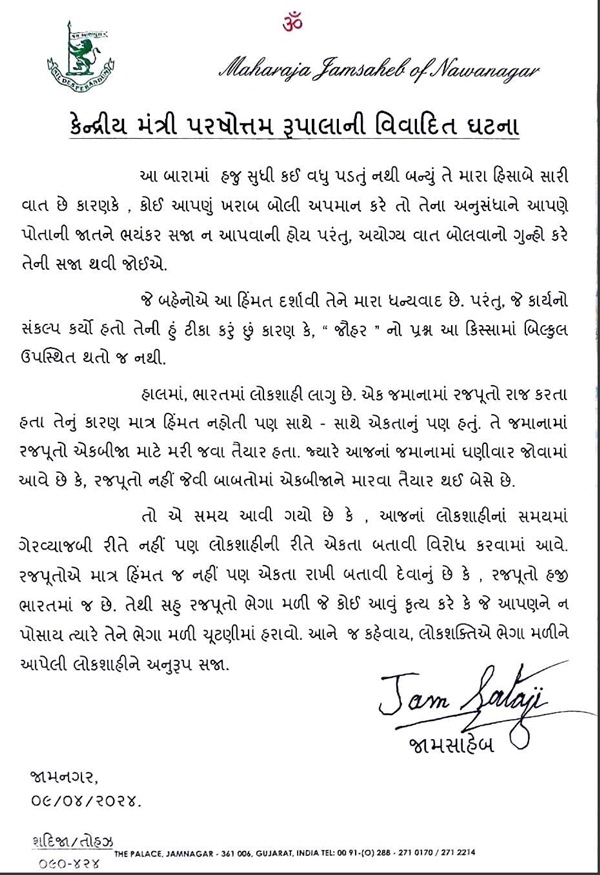 ॐ
Maharaja Jamsaheb of Nawanagar
કેન્દ્રીય મંત્રી પરષોત્તમ રૂપાલાની વિવાદિત ઘટના
આ બારામાં હજુ સુધી કઈ વધુ પડતું નથી બન્યું તે મારા હિસાબે સારી
વાત છે કારણકે , કોઈ આપણું ખરાબ બોલી અપમાન કરે તો તેના અનુસંધાને આપણે
પોતાની જાતને ભયંકર સજા ન આપવાની હોય પરંતુ, અયોગ્ય વાત બોલવાનો ગુન્હો કરે
તેની સજા થવી જોઈએ.
જે બહેનોએ આ હિંમત દર્શાવી તેને મારા ધન્યવાદ છે. પરંતુ, જે કાર્યનો
સંકલ્પ કર્યો હતો તેની હું ટીકા કરું છું કારણ કે, “ જૌહર ” નો પ્રશ્ન આ કિસ્સામાં બિલ્કુલ
ઉપસ્થિત થતો જ નથી.
હાલમાં, ભારતમાં લોકશાહી લાગુ છે. એક જમાનામાં રજપૂતો રાજ કરતા
હતા તેનું કારણ માત્ર હિંમત નહોતી પણ સાથે - સાથે એકતાનું પણ હતું. તે જમાનામાં
રજપૂતો એકબીજા માટે મરી જવા તૈયાર હતા. જ્યારે આજનાં જમાનામાં ઘણીવાર જોવામાં
આવે છે કે, રજપૂતો નહીં જેવી બાબતોમાં એકબીજાને મારવા તૈયાર થઈ બેસે છે.
તો એ સમય આવી ગયો છે કે , આજનાં લોકશાહીનાં સમયમાં
ગેરવ્યાજબી રીતે નહીં પણ લોકશાહીની રીતે એકતા બતાવી વિરોધ કરવામાં આવે.
રજપૂતોએ માત્ર હિંમત જ નહીં પણ એકતા રાખી બતાવી દેવાનું છે કે , રજપૂતો હજી
ભારતમાં જ છે. તેથી સહુ રજપૂતો ભેગા મળી જે કોઈ આવું કૃત્ય કરે કે જે આપણને ન
પોસાય ત્યારે તેને ભેગા મળી ચૂટણીમાં હરાવો. આને જ કહેવાય, લોકશક્તિએ ભેગા મળીને
આપેલી લોકશાહીને અનુરૂપ સજા.
Jam Sataji
જામસાહેબ
જામનગર,
૦૯/૦૪/૨૦૨૪.
શદિજા/તોહઝ
૦૯૦-૪૨૪
THE PALACE, JAMNAGAR - 361 006, GUJARAT, INDIA TEL: 00 91-(O) 288 - 271 0170 / 271 2214